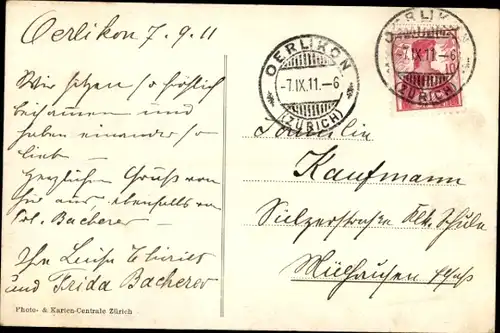 Oerlikon 7.9.11
Wir sitzen so fröhlich
beisammen und
haben einander so
lieb —
Herzlichen Gruss von
hier aus ebenfalls von
Bacherer —
Ihre Luise
und Frida Bacherer
Photo- & Karten-Centrale Zürich
OERLIKON
-7.IX.11.-6
(ZÜRICH)
OERLIKON
-7.IX.11.-6
(ZÜRICH)
Familie
Kaufmann
Sulzerstrasse Schule
Mülhausen Elsass